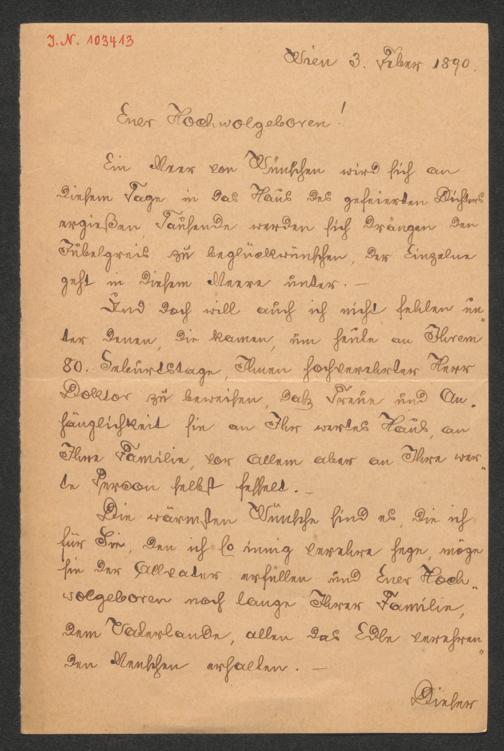 J.N. 103413
Wien 3. Feber 1890.
Euer Hochwolgeboren!
Ein Meer von Wünschen wird sich an
diesem Tage in das Haus des gefeierten Dichters
ergießen, Tausende werden sich drängen den
Jubelgreis zu beglückwünschen, der Einzelne
geht in diesem Meere unter. —
Und doch will auch ich nicht fehlen un„
ter denen, die kamen, um heute an Ihrem
80. Geburtstage, Ihnen hochverehrter Herr
Doktor zu beweisen, daß Treue und An„
hänglichkeit sie an Ihr wertes Haus, an
Ihre Familie, vor allem aber an Ihre wer„
te Person selbst fesselt. —
Die wärmsten Wünsche sind es, die ich
für Sie, den ich so innig verehre hege, möge
sie der Allvater erfüllen und Euer Hoch„
wolgeboren noch lange Ihrer Familie,
dem Vaterlande, allen das Edle verehren„
den Menschen erhalten. —
Dieser